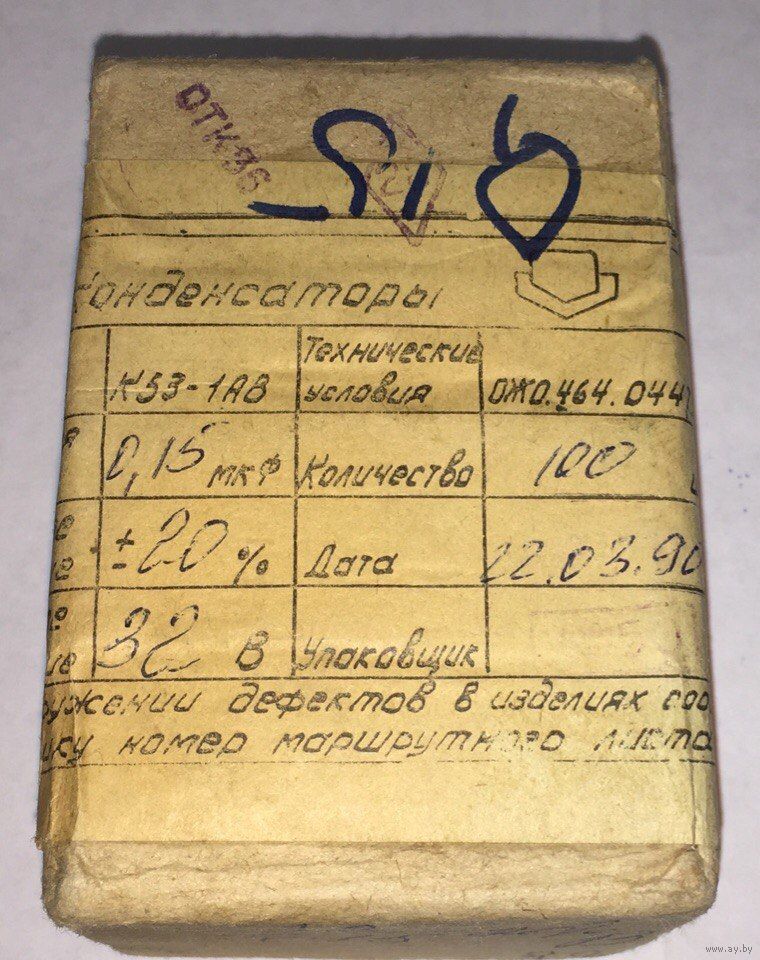 ОТК 36
Конденсаторы
К53-1АВ Технические условия ОЖ0.464.044
0,15 мкФ Количество 100
± 20 % Дата 22.03.90
32 В Упаковщик
ружении дефектов в изделиях соо
ику номер маршрутного листа
www.ay.by